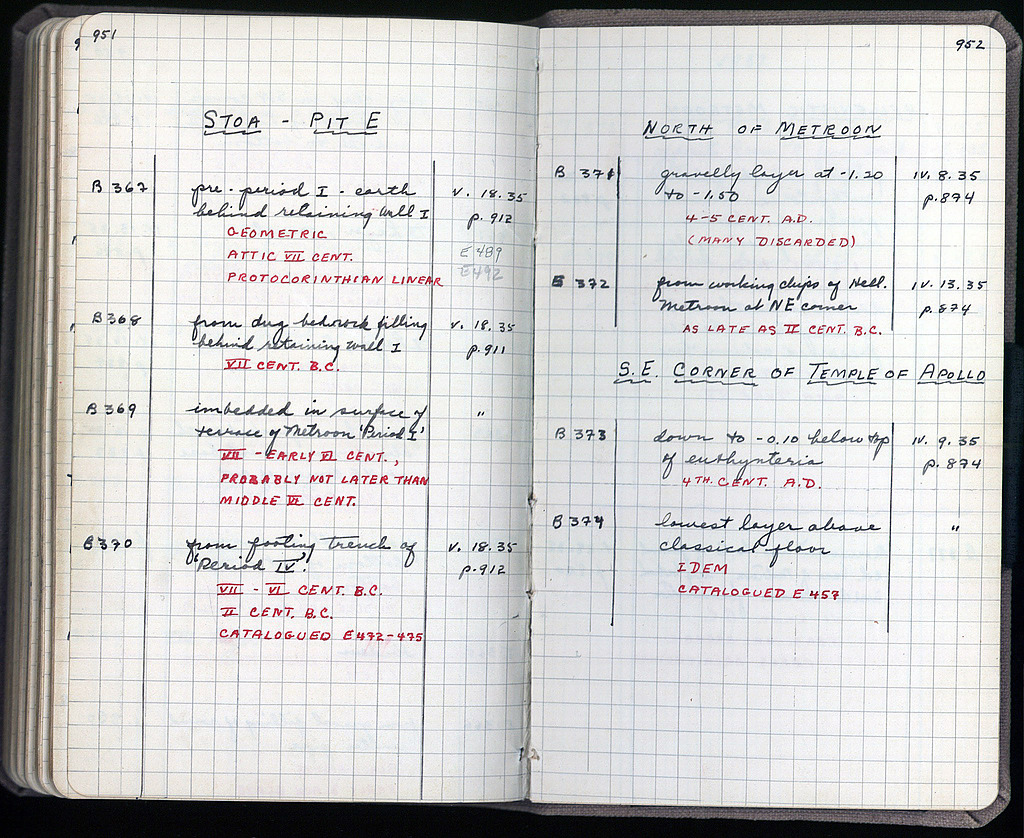 951
STOA - PIT E
B 367 pre-period I - earth v. 18.35
behind retaining wall I p. 912
GEOMETRIC
ATTIC VII CENT. E 489
PROTOCORINTHIAN LINEAR E 492
B 368 from dug bedrock filling v. 18.35
behind retaining wall I p. 911
VII CENT. B.C.
B 369 imbedded in surface of "
terrace of Metroon 'Period I'
VII - EARLY VI CENT.,
PROBABLY NOT LATER THAN
MIDDLE VI CENT.
B 370 from footing trench of v. 18.35
'Period IV'. p. 912
VII - VI CENT. B.C.
II CENT. B.C.
CATALOGUED E 472-475
952
NORTH OF METROON
B 371 gravelly layer at -1.20 iv. 8.35
to -1.50 p. 874
4-5 CENT. A.D.
(MANY DISCARDED)
B 372 from working chips of Hell. iv. 13.35
Metroon at NE corner p. 874
AS LATE AS II CENT. B.C.
S.E. CORNER OF TEMPLE OF APOLLO
B 373 down to -0.10 below top iv. 9.35
of euthynteria p. 874
4TH. CENT. A.D.
B 374 lowest layer above "
classical floor
IDEM
CATALOGUED E 457